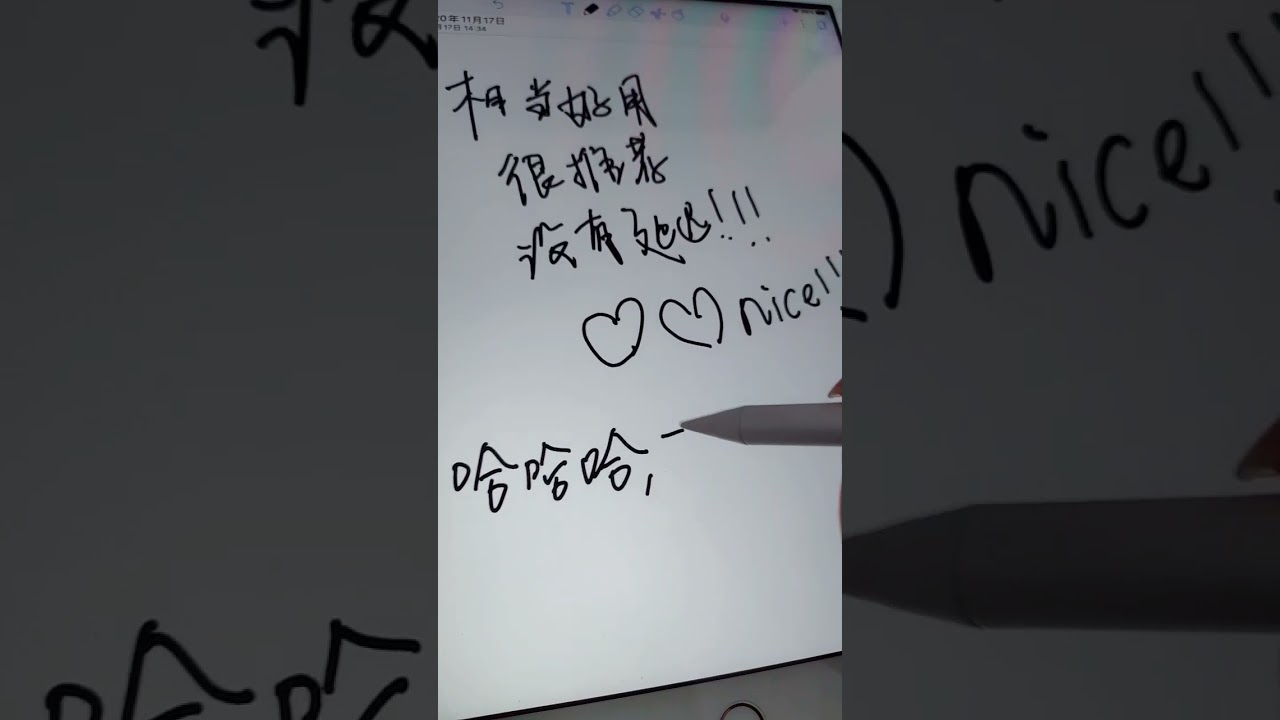 20年11月17日
月17日 14:34
相当好用
很推荐
没有延迟!!!
♡♡nice!!!
哈哈哈,